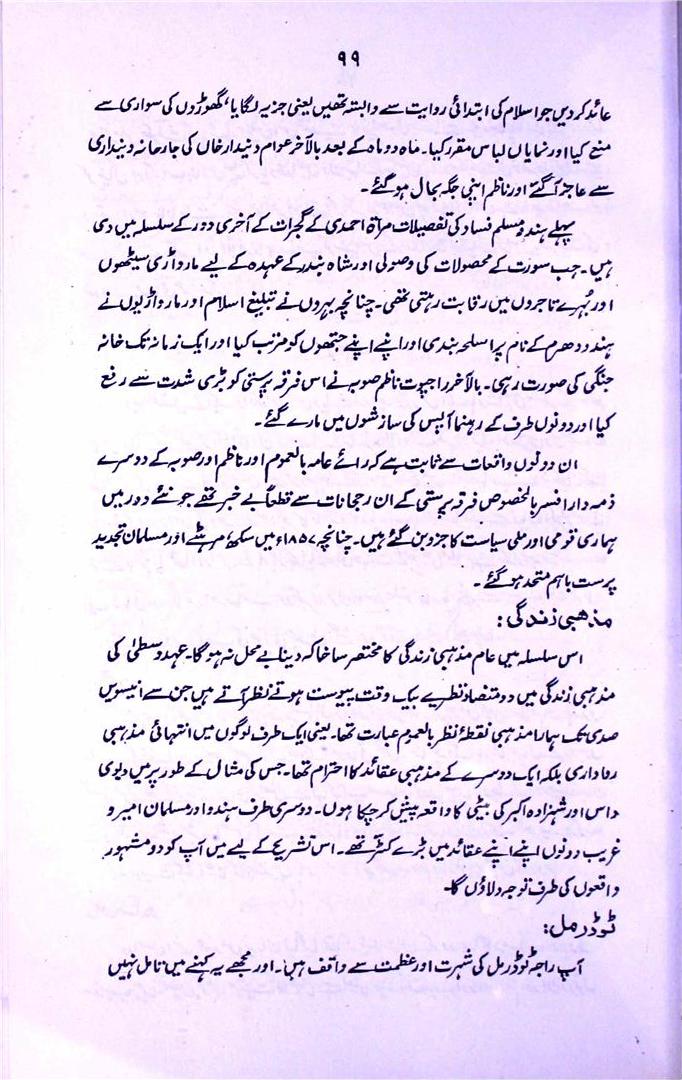 ۹۹
عائد کردیں جو اسلام کی ابتدائی روایت سے وابستہ تھیں یعنی جزیہ لگایا، گھوڑوں کی سواری سے
منع کیا اور نمایاں لباس مقرر کیا۔ ماہ دو ماہ کے بعد بالآخر عوام دنیدار خاں کی جارحانہ دنیداری
سے عاجز آگئے اور ناظم اپنی جگہ بحال ہو گئے۔
پہلے ہندو مسلم فساد کی تفصیلات مرآۃ احمدی کے گجرات کے آخری دور کے سلسلہ میں دی
ہیں۔ جب سورت کے محصولات کی وصولی اور شاہ بندر کے عہدہ کے لیے مارواڑی سیٹھوں
اور بُہرے تاجروں میں رقابت رہتی تھی۔ چنانچہ بہروں نے تبلیغ اسلام اور مارواڑیوں نے
ہندو دھرم کے نام پر اسلحہ بندی اور اپنے اپنے جتھوں کو مرتب کیا اور ایک زمانہ تک خانہ
جنگی کی صورت رہی۔ بالآخر راجپوت ناظم صوبہ نے اس فرقہ پرستی کو بڑی شدت سے رفع
کیا اور دونوں طرف کے رہنما آپس کی سازشوں میں مارے گئے۔
ان دونوں واقعات سے ثابت ہے کہ رائے عامہ بالعموم اور ناظم اور صوبہ کے دوسرے
ذمہ دار افسر بالخصوص فرقہ پرستی کے ان رجحانات سے قطعاً بے خبر تھے جو نئے دور میں
ہماری قومی اور ملی سیاست کا جزو بن گئے ہیں۔ چنانچہ ۱۸۵۷ء میں سکھ، مرہٹے اور مسلمان تجدید
پرست باہم متحد ہو گئے۔
مذھبی زندگی:
اس سلسلہ میں عام مذہبی زندگی کا مختصر سا خاکہ دینا بے محل نہ ہوگا۔ عہد وسطیٰ کی
مذہبی زندگی میں دو متضاد نظریے بیک وقت پیوست ہوتے نظر آتے ہیں جن سے انیسویں
صدی تک ہمارا مذہبی نقطۂ نظر بالعموم عبارت تھا۔ یعنی ایک طرف لوگوں میں انتہائی مذہبی
رواداری بلکہ ایک دوسرے کے مذہبی عقائد کا احترام تھا۔ جس کی مثال کے طور پر میں دیوی
داس اور شہزادہ اکبر کی بیٹی کا واقعہ پیش کر چکا ہوں۔ دوسری طرف ہندو اور مسلمان امیر و
غریب دونوں اپنے اپنے عقائد میں بڑے کٹر تھے۔ اس تشریح کے لیے میں آپ کو دو مشہور
واقعوں کی طرف توجہ دلاؤں گا۔
ٹوڈرمل:
آپ راجہ ٹوڈرمل کی شہرت اور عظمت سے واقف ہیں۔ اور مجھے یہ کہنے میں تامل نہیں